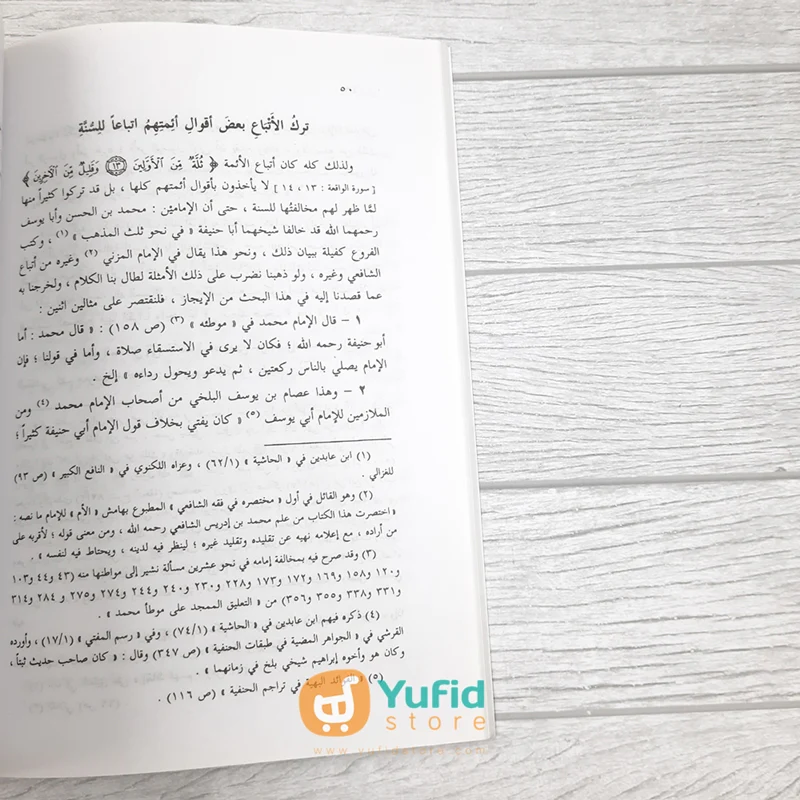 ٥٠
تركُ الأَتْبَاعِ بعضَ أقوالِ أئِمتِهِمُ اتباعاً للسُنَّةِ
ولذلك كله كان أتباع الأئمة ﴿ ثُلَّةٌ مِّنَ ٱلْأَوَّلِينَ ١٣ وَقَلِيلٌ مِّنَ ٱلْآخِرِينَ ﴾
[ سورة الواقعة : ١٣ ، ١٤ ] لا يأخذون بأقوال أئمتهم كلها ، بل قد تركوا كثيراً منها
لمَّا ظهر لهم مخالفتُها للسنة ، حتى أن الإماميْن : محمد بن الحسن وأبا يوسف
رحمهما الله قد خالفا شيخهما أبا حنيفة « في نحو ثلث المذهب » (١) ، وكتب
الفروع كفيلة ببيان ذلك ، ونحو هذا يقال في الإمام المزني (٢) وغيره من أتباع
الشافعي وغيره ، ولو ذهبنا نضرب على ذلك الأمثلة لطال بنا الكلام ، ولخرجنا به
عما قصدنا إليه في هذا البحث من الإيجاز ، فلنقتصر على مثالين اثنين :
١ – قال الإمام محمد في « موطئه » (٣) (ص ١٥٨) : « قال محمد : أما
أبو حنيفة رحمه الله ؛ فكان لا يرى في الاستسقاء صلاة ، وأما في قولنا ؛ فإن
الإمام يصلي بالناس ركعتين ، ثم يدعو ويحول رداءه » إلخ .
٢ – وهذا عصام بن يوسف البلخي من أصحاب الإمام محمد (٤) ومن
الملازمين للإمام أبي يوسف (٥) « كان يفتي بخلاف قول الإمام أبي حنيفة كثيراً ؛
(١) ابن عابدين في « الحاشية » (٦٢/١) ، وعزاه اللكنوي في « النافع الكبير » (ص ٩٣)
للغزالي .
(٢) وهو القائل في أول « مختصره في فقه الشافعي » المطبوع بهامش « الأم » للإمام ما نصه :
« اختصرت هذا الكتاب من علم محمد بن إدريس الشافعي رحمه الله ، ومن معنى قوله ؛ لأقربه على
من أراده ، مع إعلامه نهيه عن تقليده وتقليد غيره ؛ لينظر فيه لدينه ، ويحتاط فيه لنفسه » .
(٣) وقد صرح فيه بمخالفة إمامه في نحو عشرين مسألة نشير إلى مواطنها منه (٤٣ و٤٤ و١٠٣
و١٢٠ و١٥٨ و١٦٩ و١٧٢ و١٧٣ و٢٢٨ و٢٣٠ و٢٤٠ و٢٤٤ و٢٧٤ و٢٧٥ و ٢٨٤ و٣١٤
و٣٣١ و٣٣٨ و٣٥٥ و٣٥٦) من « التعليق الممجد على موطأ محمد » .
(٤) ذكره فيهم ابن عابدين في « الحاشية » (٧٤/١) ، وفي « رسم المفتي » (١٧/١) ، وأورده
القرشي في « الجواهر المضية في طبقات الحنفية » (ص ٣٤٧) وقال : « كان صاحب حديث ثبتاً ،
وكان هو وأخوه إبراهيم شيخي بلخ في زمانهما » .
(٥) « الفوائد البهية في تراجم الحنفية » (ص ١١٦) .
Yufid
store